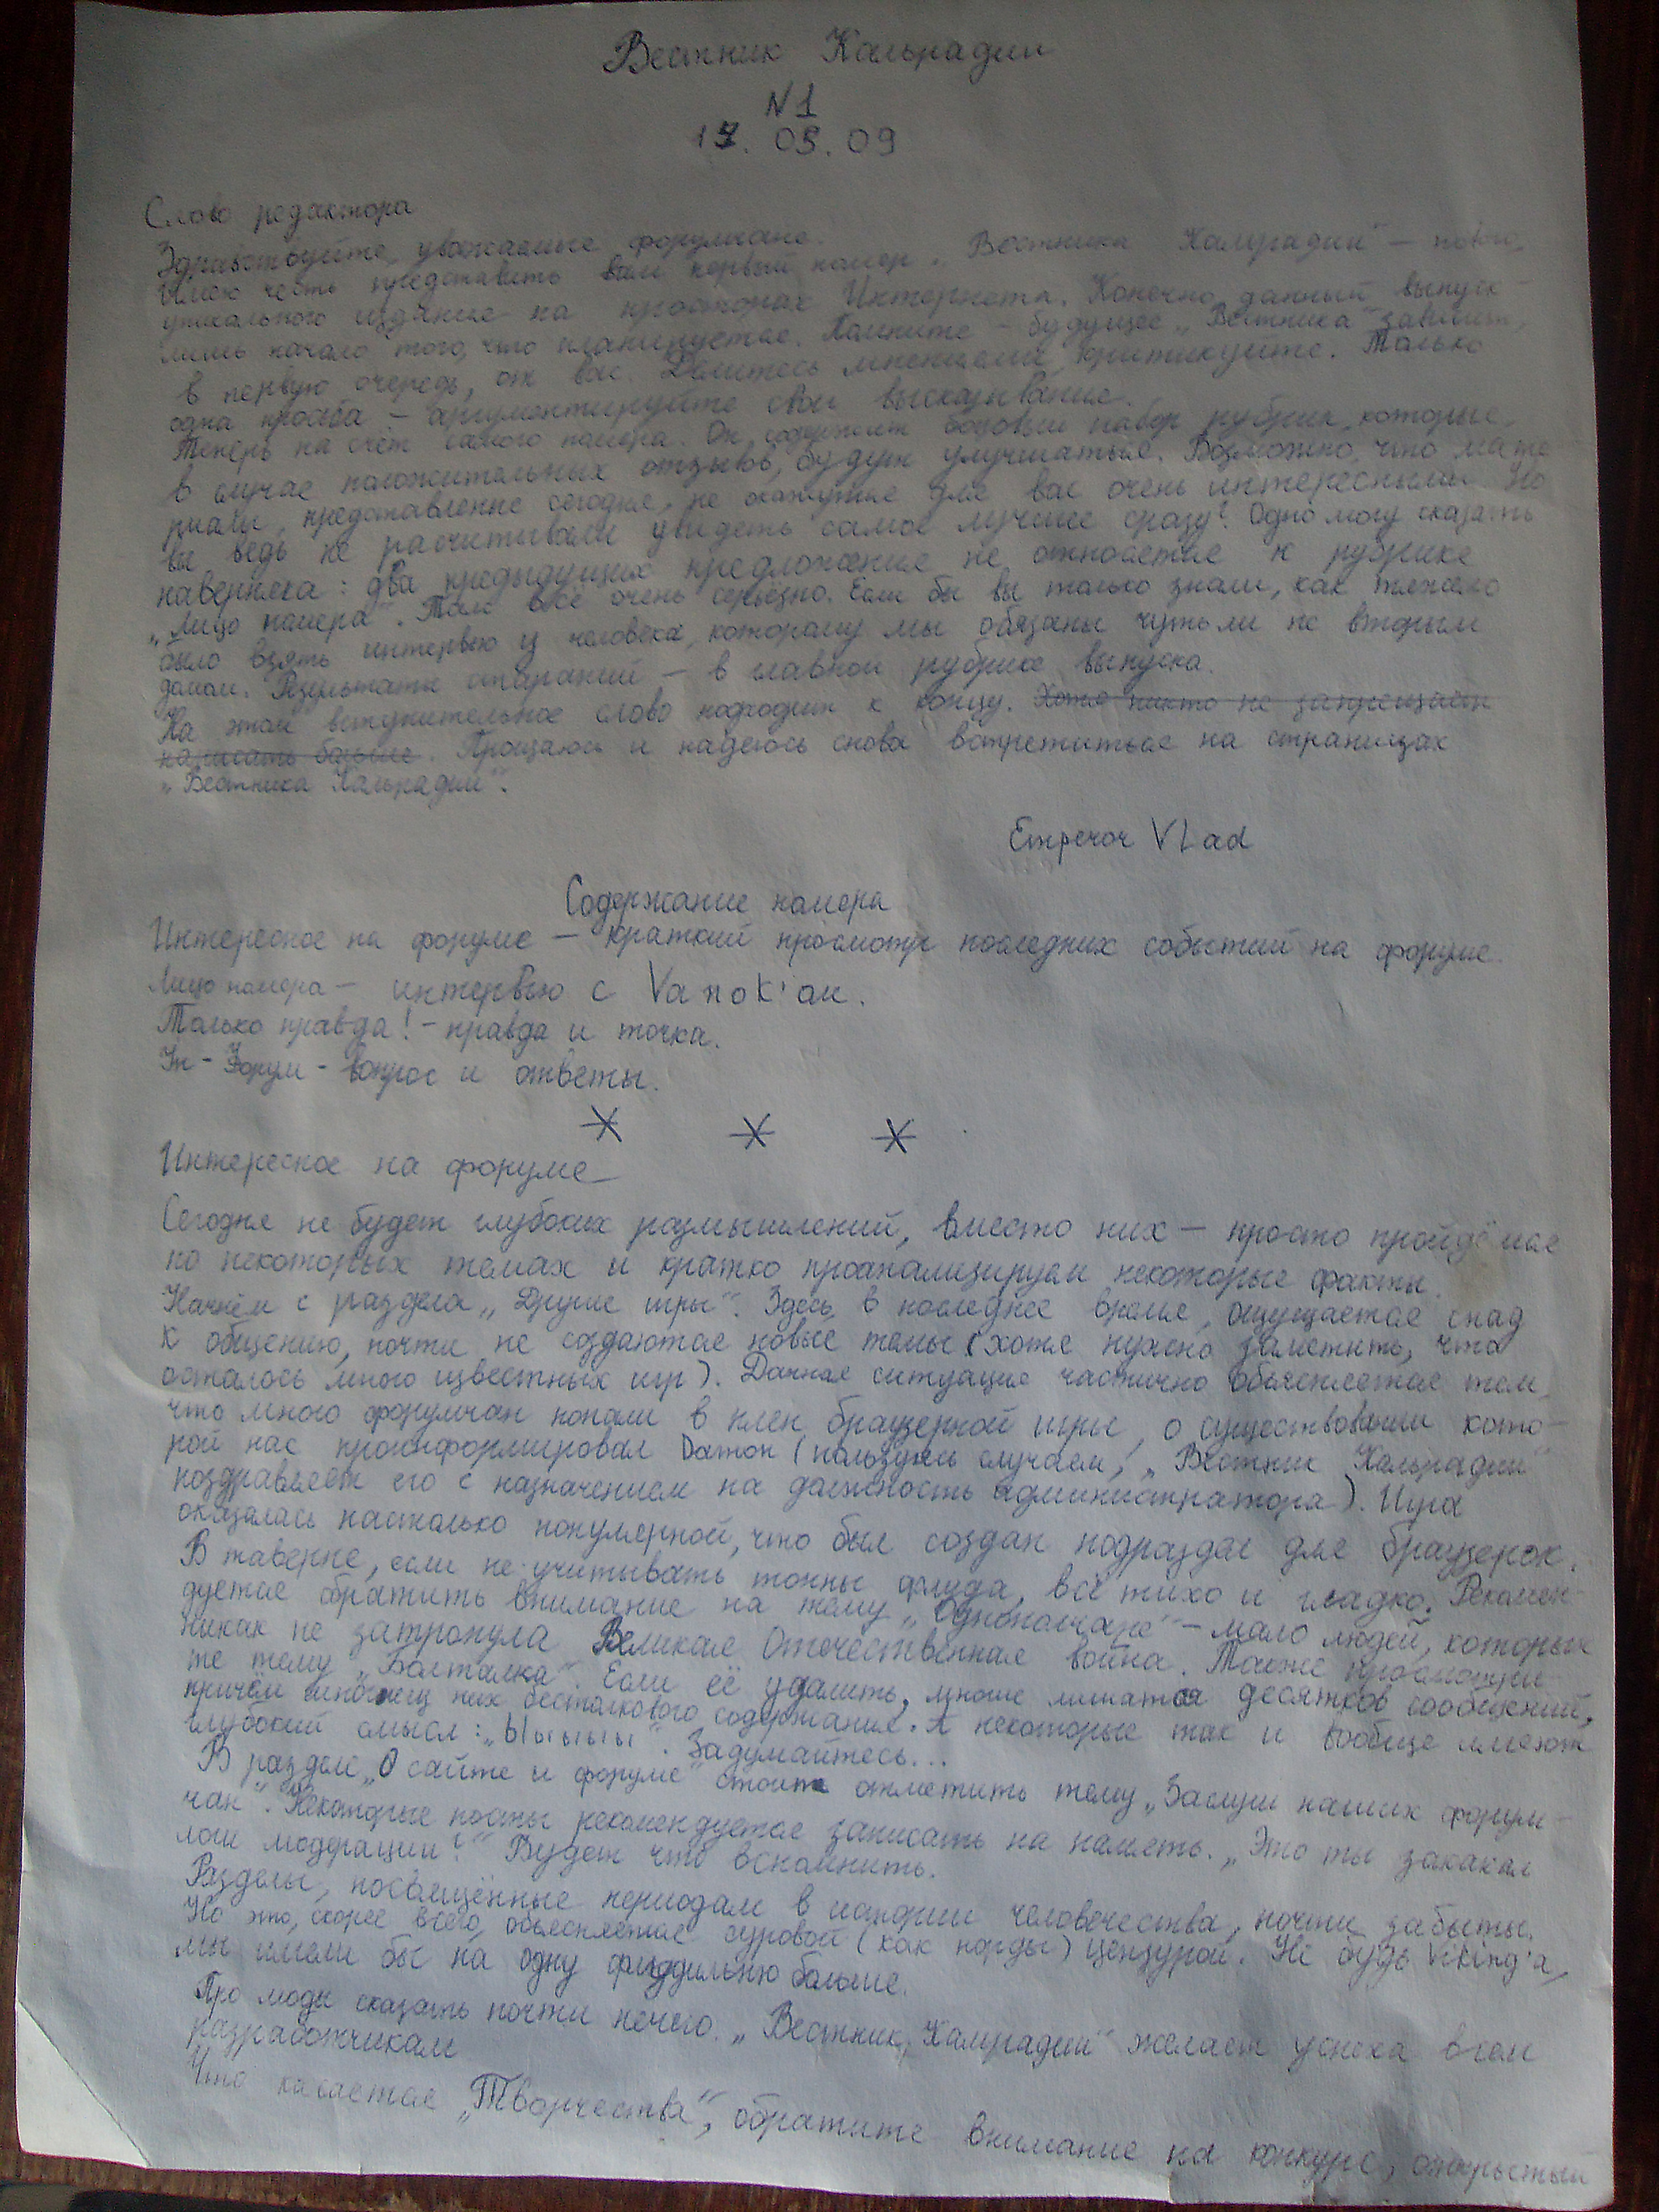 Вестник Кальрадии
N1
17. 05. 09
Слово редактора
Здравствуйте, уважаемые форумчане.
Имею честь представить вам первый номер „Вестника Кальрадии" – нового,
уникального издания на просторах Интернета. Конечно, данный выпуск –
лишь начало того, что планируется. Помните – будущее „Вестника" зависит,
в первую очередь, от вас. Делитесь мнениями, критикуйте. Только
одна просьба – аргументируйте свои высказывания.
Теперь на счёт самого номера. Он содержит базовый набор рубрик, которые,
в случае положительных отзывов, будут улучшаться. Возможно, что мате
риалы, представленные сегодня, не окажутся для вас очень интересными. Но
вы ведь не расчитывали увидеть самое лучшее сразу? Одно могу сказать
наверняка: два предыдущих предложения не относятся к рубрике
„Лицо номера". Там всё очень серьёзно. Если бы вы только знали, как тяжело
было взять интервью у человека, которому мы обязаны чуть ли не вторым
домом. Результаты стараний – в главной рубрике выпуска.
На этом вступительное слово подходит к концу. Хотя никто не запрещает
написать больше. Прощаюсь и надеюсь снова встретиться на страницах
„Вестника Кальрадии".
Emperor VLad
Содержание номера
Интересное на форуме – краткий просмотр последних событий на форуме.
Лицо номера – интервью с Vanok'ом.
Только правда! – правда и точка.
Ин-Форум – вопрос и ответы.
* * *
Интересное на форуме
Сегодня не будет глубоких размышлений, вместо них – просто пройдёмся
по некоторых темах и кратко проанализируем некоторые факты.
Начнём с раздела „Другие игры". Здесь, в последнее время, ощущается спад
к общению, почти не создаются новые темы (хотя нужно заметить, что
осталось много известных игр). Данная ситуация частично объясняется тем,
что много форумчан попали в плен браузерной игры, о существовании кото-
рой нас проинформировал Damon (пользуясь случаем, „Вестник Кальрадии"
поздравляет его с назначением на должность администратора). Игра
оказалась настолько популярной, что был создан подраздел для браузерок.
В таверне, если не учитывать тонны флуда, всё тихо и гладко. Рекомен-
дуется обратить внимание на тему „Однополчане" – мало людей, которых
никак не затронула Великая Отечественная война. Также просмотри-
те тему „Болталка". Если её удалить, многие лишатся десятков сообщений,
причём многие из них бестолкового содержания. А некоторые так и вообще имеют
глубокий смысл: „Ыыыыы". Задумайтесь...
В разделе „О сайте и форуме" стоит отметить тему „Заслуги наших форум-
чан". Некоторые посты рекомендуется записать на память. „Это ты закакал
логи модерации?" Будет что вспомнить.
Разделы, посвящённые периодам в истории человечества, почти забыты.
Но это, скорее всего, объясняется суровой (как норды) цензурой. Не будь Viking'а,
мы имели бы на одну флудильню больше.
Про моды сказать почти нечего. „Вестник Кальрадии" желает успеха всем
разработчикам
Что касается „Творчества", обратите внимание на конкурс, открытый